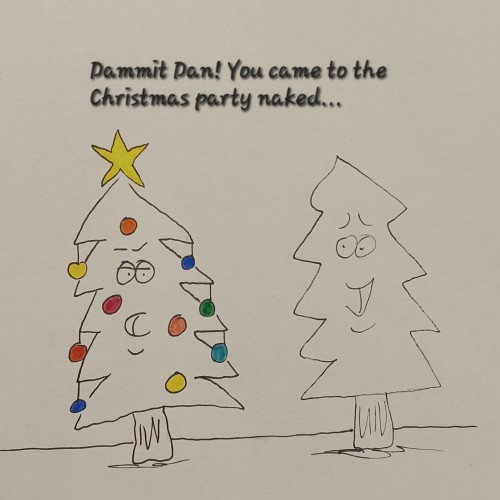 Dammit Dan! You came to the
Christmas party naked...